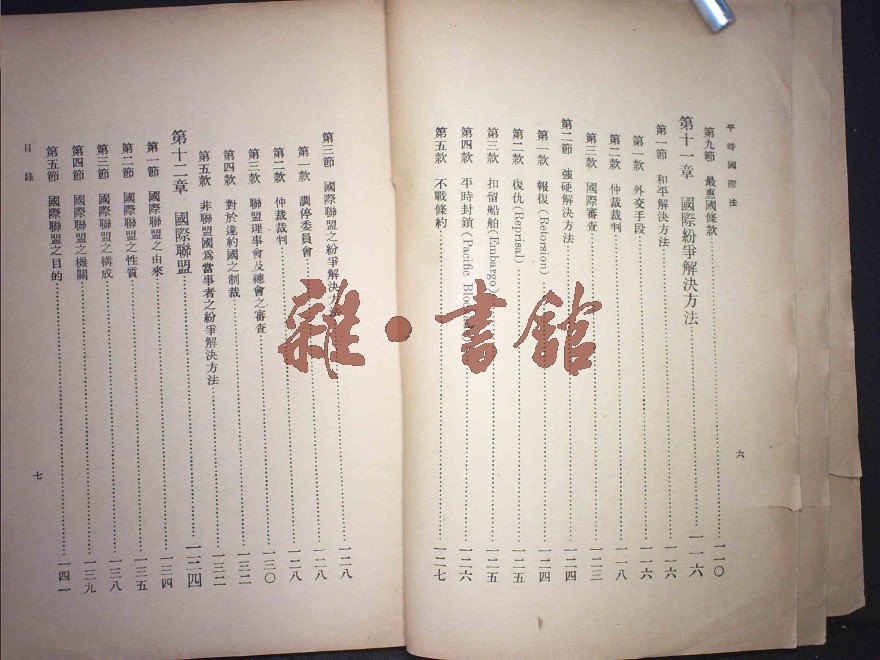 平時國際法
第九節 最惠國條款 一一〇
第十一章 國際紛爭解決方法 一一六
第一節 和平解決方法 一一六
第一款 外交手段 一一六
第二款 仲裁裁判 一一八
第三款 國際審查 一二三
第二節 強硬解決方法 一二四
第一款 報復(Retorsion) 一二四
第二款 復仇(Reprisal) 一二五
第三款 扣留船舶(Embargo) 一二五
第四款 平時封鎖(Pacific 一二六
第五款 不戰條約 一二七
六
第三節 國際聯盟之紛爭解決方法 一二八
第一款 調停委員會 一二八
第二款 仲裁裁判 一二八
第三款 聯盟理事會及總會之審查 一三〇
第四款 對於違約國之制裁 一三二
第五款 非聯盟國爲當事者之紛爭解決方法 一三二
第十二章 國際聯盟
第一節 國際聯盟之由來 一三四
第二節 國際聯盟之性質 一三五
第三節 國際聯盟之構成 一三八
第四節 國際聯盟之機關 一三九
第五節 國際聯盟之目的 一四一
目錄
七
雜·書館